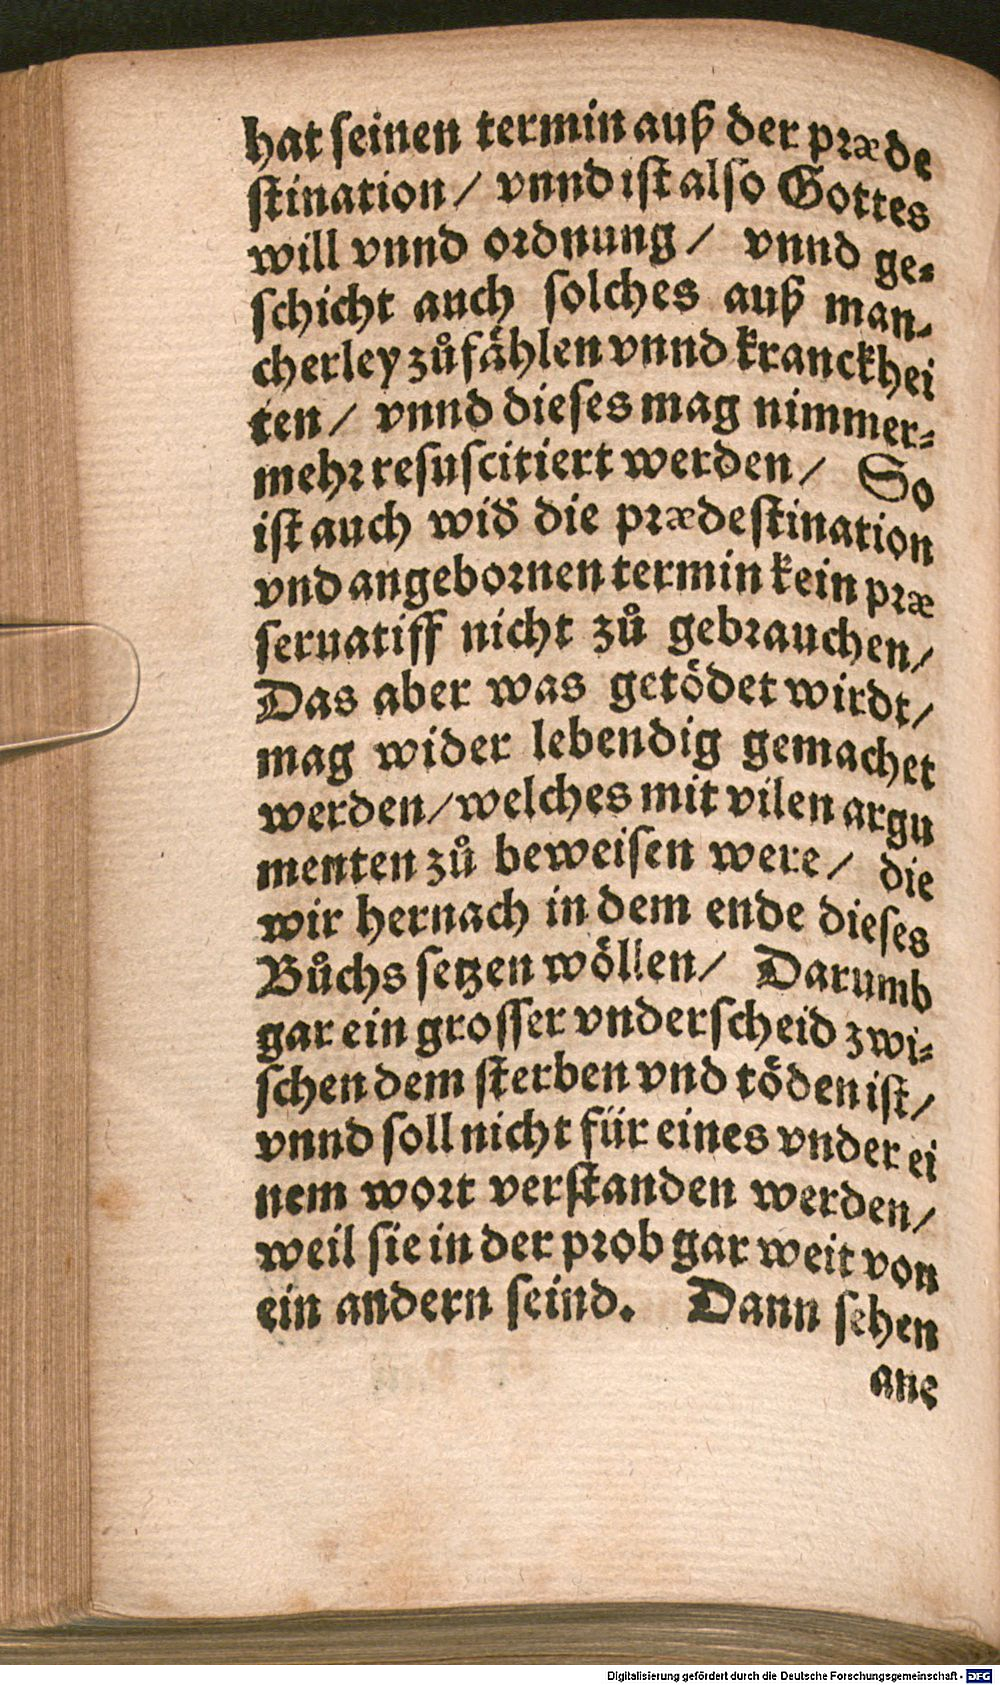 hat ſeinen termin auß der præde
ſtination / vnnd iſt alſo Gottes
will vnnd ordnung / vnnd ge⸗
ſchicht auch ſolches auß man⸗
cherley zůfählen vnnd kranckhei
ten / vnnd dieſes mag nimmer⸗
mehr reſuſcitiert werden / So
iſt auch wid̃ die prædeſtination
vnd angebornen termin kein præ
ſeruatiff nicht zů gebrauchen /
Das aber was getödet wirdt /
mag wider lebendig gemachet
werden / welches mit vilen argu
menten zů beweiſen were / die
wir hernach in dem ende dieſes
Bůchs ſetzen wöllen / Darumb
gar ein groſſer vnderſcheid zwi⸗
ſchen dem ſterben vnd töden iſt /
vnnd ſoll nicht für eines vnder ei
nem wort verſtanden werden /
weil ſie in der prob gar weit von
ein andern ſeind. Dann ſehen
ane
Digitalisierung gefördert durch die Deutsche Forschungsgemeinschaft - DFG